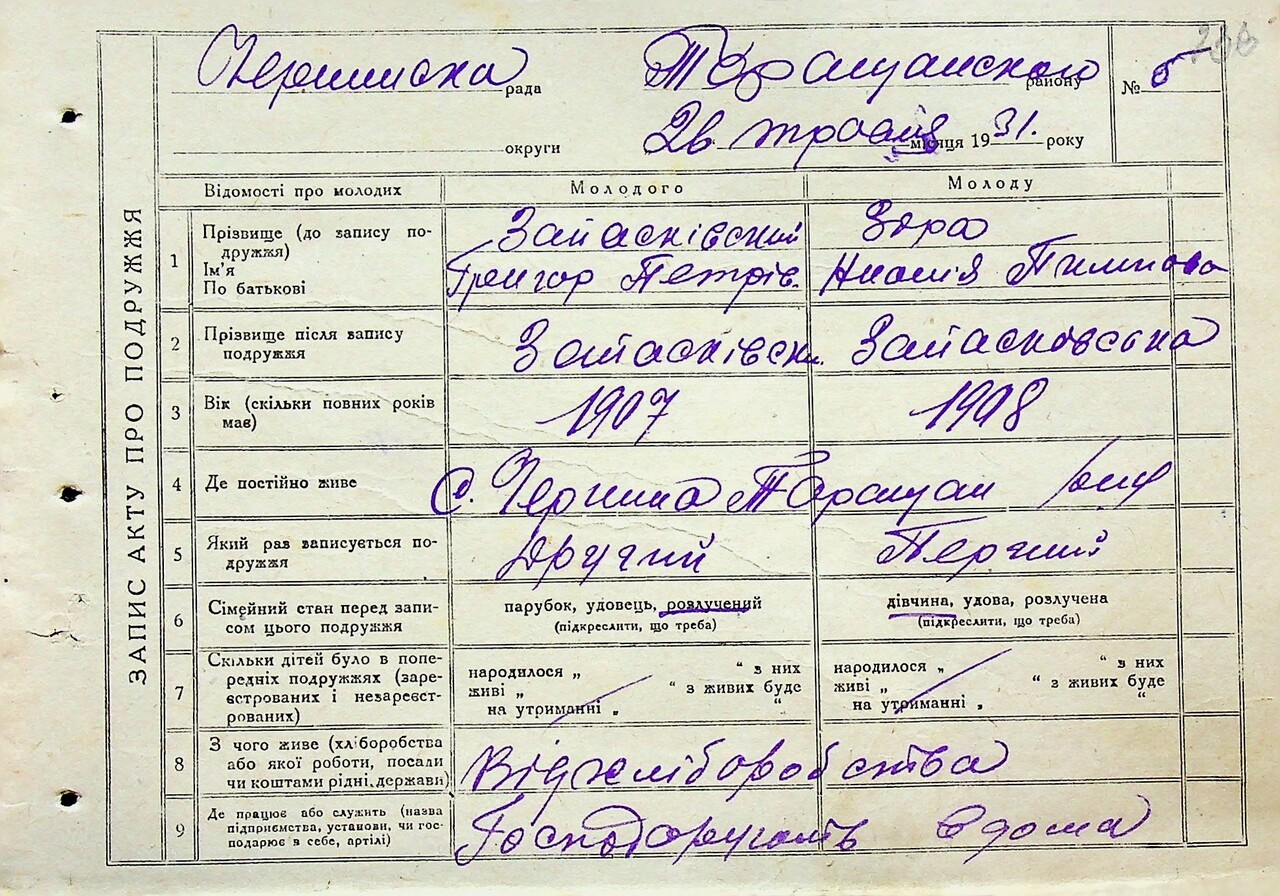 рада Таращанского району № 5
округи 26 травня місяця 1931. року
ЗАПИС АКТУ ПРО ПОДРУЖЖЯ
Відомості про молодих Молодого Молоду
1 Прізвище (до запису по- Запасківский Зора
дружжя)
Ім'я Григор Петрів.
По батькові
2 Прізвище після запису
подружжя Запасківск. Запасковська
3 Вік (скільки повних років 1907 1908
має)
4 Де постійно живе с. Таращан
5 Який раз записується по- Другий Перший
дружжя
6 Сімейний стан перед запи- парубок, удовець, розлучений дівчина, удова, розлучена
сом цього подружжя (підкреслити, що треба) (підкреслити, що треба)
7 Скільки дітей було в попе- народилося „ “ з них народилося „ “ з них
редніх подружжях (заре- живі „ “ з живих буде живі „ “ з живих буде
єстрованих і незареєст- на утриманні „ “ на утриманні „ “
рованих)
8 З чого живе (хліборобства Від хліборобства
або якої роботи, посади
чи коштами рідні, держави)
9 Де працює або служить (назва Господарують вдома
підприємства, установи, чи гос-
подарює в себе, артілі)